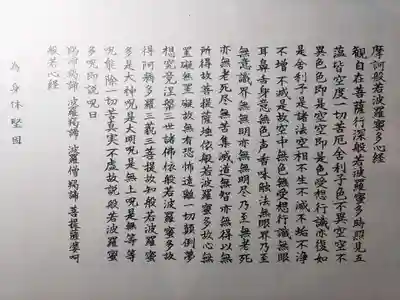 摩訶般若波羅蜜多心経
観自在菩薩行深般若波羅蜜多時照見五
蘊皆空度一切苦厄舎利子色不異空空不
異色色即是空空即是色受想行識亦復如
是舎利子是諸法空相不生不滅不垢不浄
不増不減是故空中無色無受想行識無眼
耳鼻舌身意無色声香味触法無眼界乃至
無意識界無無明亦無無明尽乃至無老死
亦無老死尽無苦集滅道無智亦無得以無
所得故菩提薩埵依般若波羅蜜多故心無
罣礙無罣礙故無有恐怖遠離一切顛倒夢
想究竟涅槃三世諸佛依般若波羅蜜多故
得阿耨多羅三藐三菩提故知般若波羅蜜
多是大神呪是大明呪是無上呪是無等等
呪能除一切苦真実不虚故説般若波羅蜜
多呪即説呪曰
羯諦羯諦 波羅羯諦 波羅僧羯諦 菩提薩婆訶
般若心経
為身体堅固